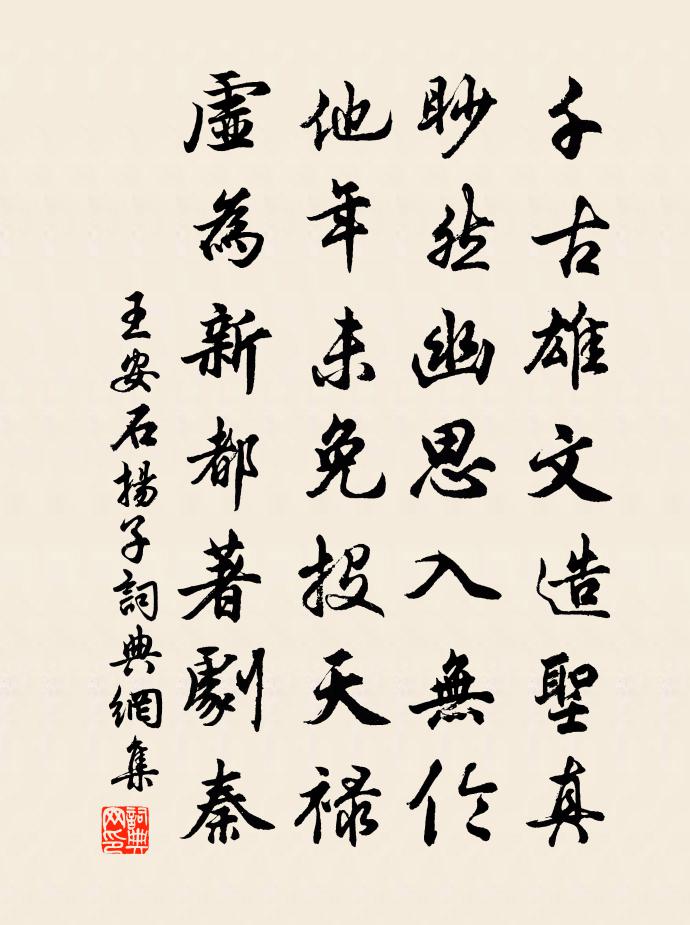 千古雄文造聖真
眇然幽思入無伦
他年未免投天禄
虛為新都著劇秦
王安石揚子詞典網集
詞典網印